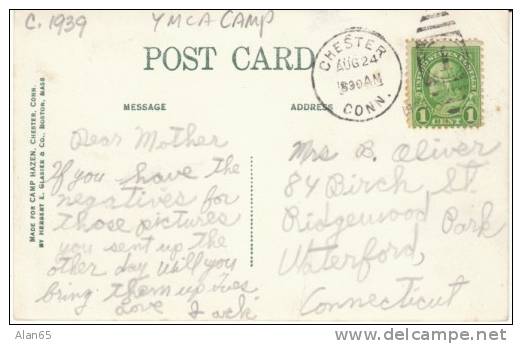 C. 1939 YMCA CAMP
POST CARD
MESSAGE ADDRESS
CHESTER
AUG 24
830AM
CONN.
1 CENT 1
MADE FOR CAMP HAZEN, CHESTER, CONN.
BY HERBERT E. GLASIER & CO., BOSTON, MASS
Dear Mother
If you have the
negatives for
those pictures
you sent up the
other day will you
bring them up Tues
Love Jack
Mrs B. Oliver
84 Birch St
Ridgewood Park
Waterford,
Connecticut
Alan65
www.delcampe.net